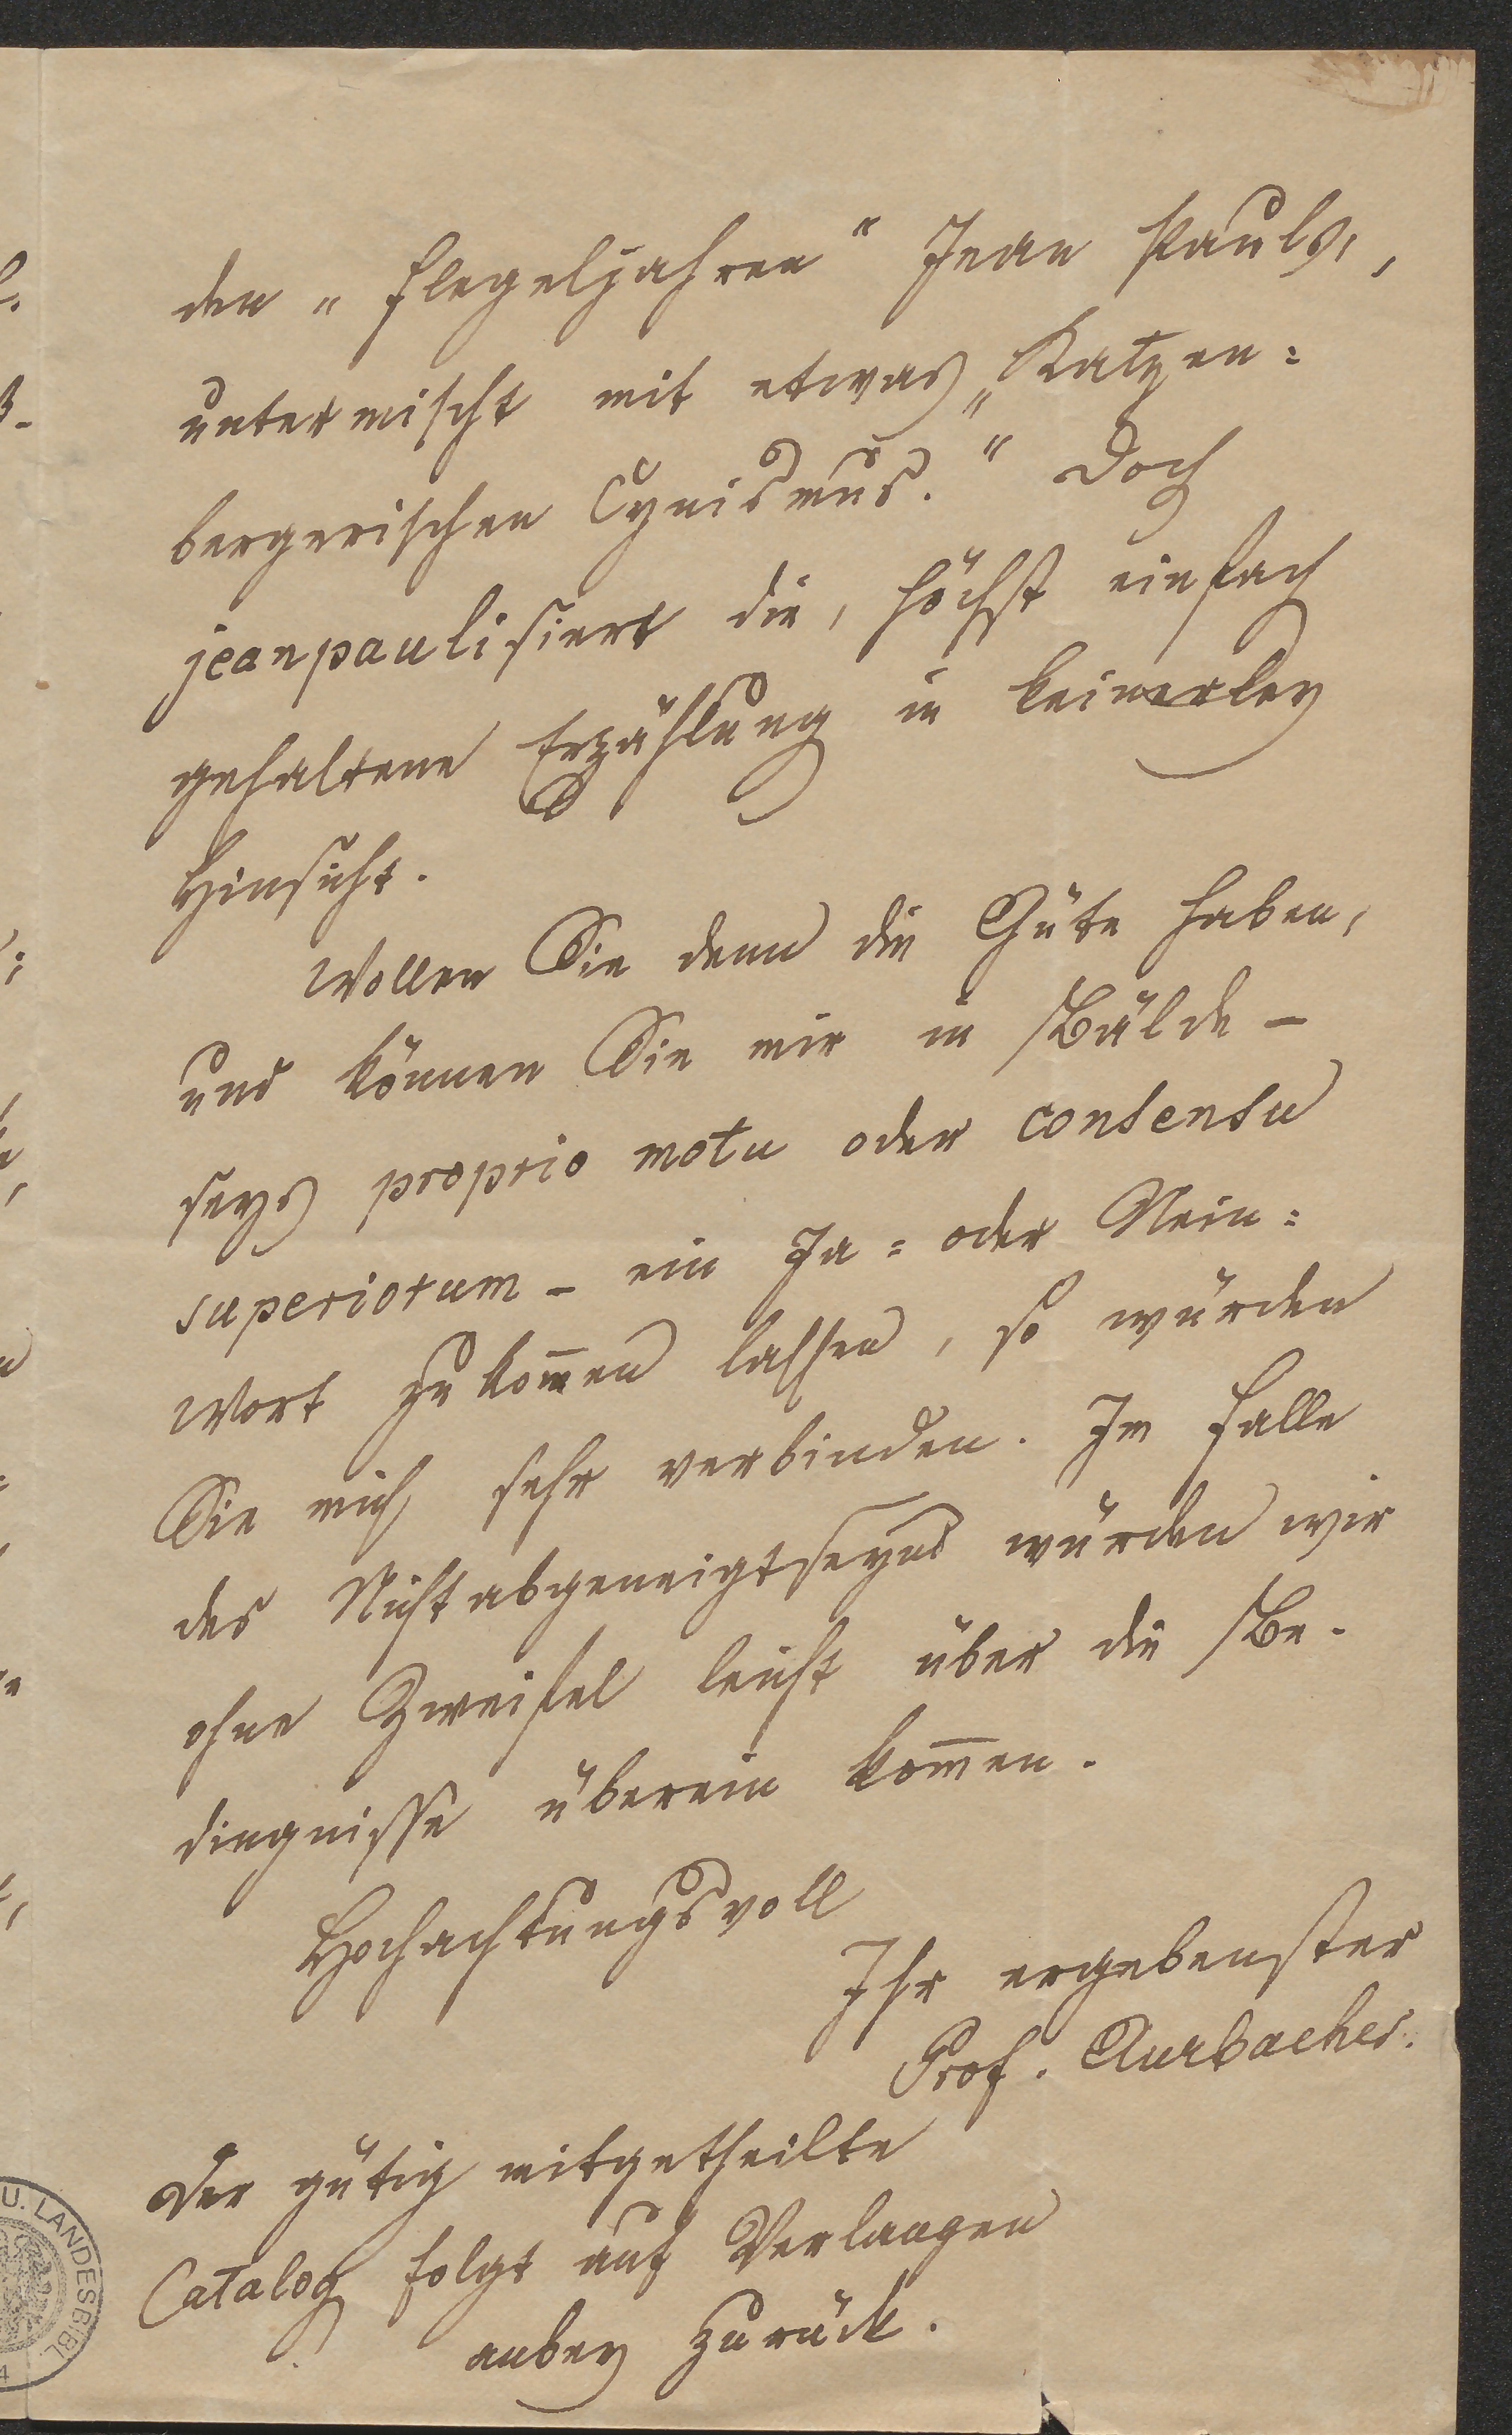 den „Flegeljahren“ Jean Pauls,
untermischt mit etwas „Katzen=
bergerischen Cynismus.“ Doch
jeanpaulisiert die, höchst einfach
gehaltene Erzählung in keinerley
Hinsicht.
Wollen Sie denn die Güte haben,
und können Sie mir in Bälde –
seys proprio motu oder consensu
superiorum – ein Ja= oder Nein=
wort zukom̅en lassen, so würden
Sie mich sehr verbinden. Im Falle
des Nichtabgeneigtseyns würden wir
ohne Zweifel leicht über die Be-
dingnisse überein kom̅en.
Hochachtungsvoll
Ihr ergebenster
Prof. Aurbacher.
Der gütig mitgetheilte
Catalog folgt auf Verlangen
anbey zurück.
U. LANDESBIBL
4